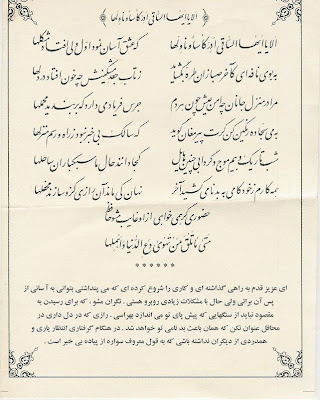 الا یا ایها الساقی ادر کأسا و ناولها
الا یا ایها الساقی ادر کأسا و ناولها که عشق آسان نمود اول ولی افتاد مشکلها
به بوی نافه‌ای کآخر صبا زان طره بگشاید ز تاب جعد مشکینش چه خون افتاد در دلها
مرا در منزل جانان چه امن عیش چون هر دم جرس فریاد می‌دارد که بربندید محملها
به می سجاده رنگین کن گرت پیر مغان گوید که سالک بی‌خبر نبود ز راه و رسم منزلها
شب تاریک و بیم موج و گردابی چنین هایل کجا دانند حال ما سبکباران ساحلها
همه کارم ز خودکامی به بدنامی کشید آخر نهان کی ماند آن رازی کزو سازند محفلها
حضوری گر همی خواهی ازو غایب مشو حافظ
متی ما تلق من تهوی دع الدنیا و اهملها
******
ای عزیز قدم به راهی گذاشته ای و کاری را شروع کرده ای که می پنداشتی بتوانی به آسانی از
پس آن برائی ولی حال با مشکلات زیادی روبرو هستی . نگران مشو ، که برای رسیدن به
مقصود نباید از سنگهایی که پیش پای تو می اندازد بهراسی . رازی که در دل داری در
محافل عنوان نکن که همان باعث بد نامی تو خواهد شد . در هنگام گرفتاری انتظار یاری و
همدردی از دیگران نداشته باشی که به قول معروف سواره از پیاده بی خبر است .